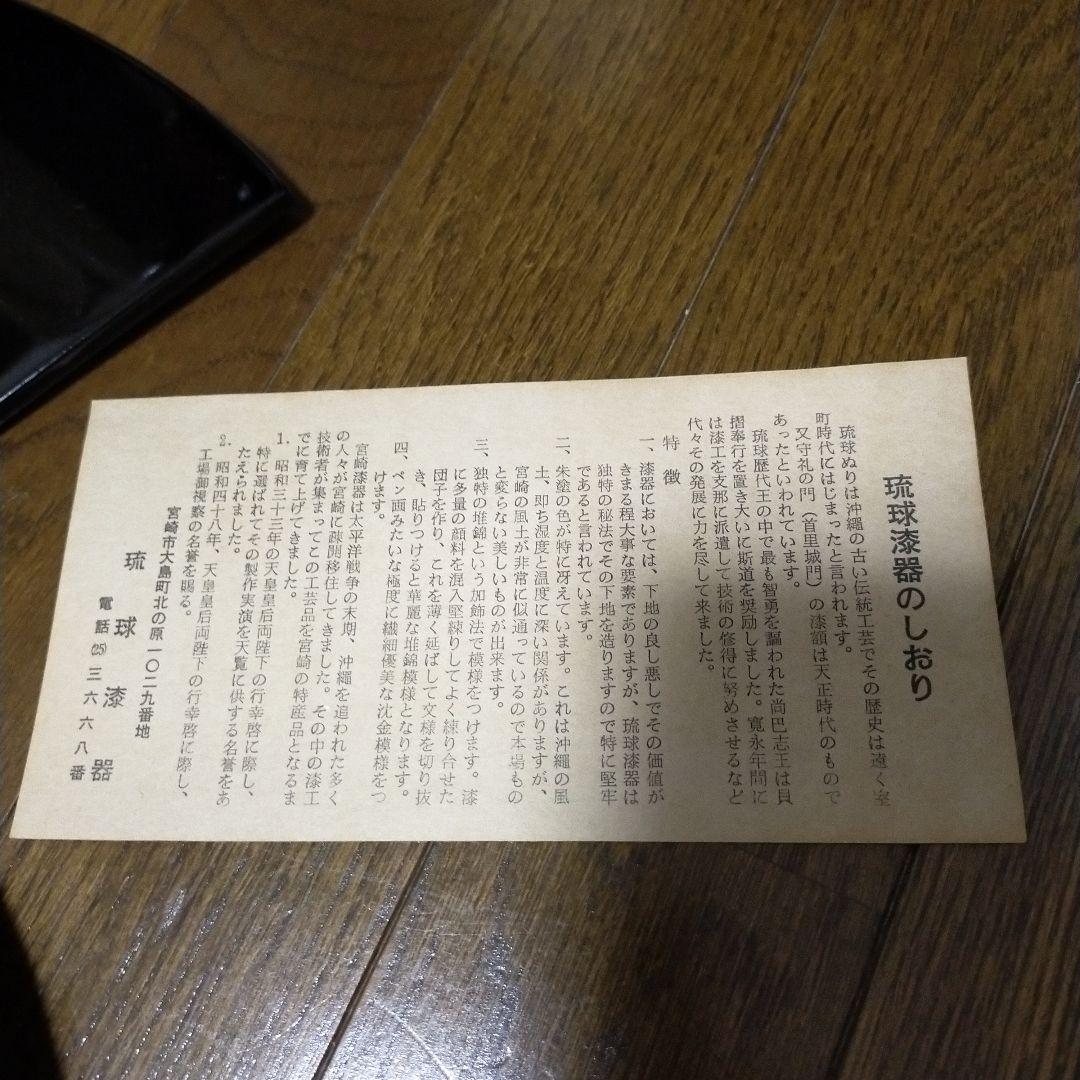 琉球漆器のしおり
琉球ぬりは沖縄の古い伝統工芸でその歴史は遠く室
町時代にはじまったと言われます。
又守礼の門(首里城門)の漆額は天正時代のもので
あったといわれています。
琉球歴代王の中で最も智勇を謳われた尚巴志王は貝
摺奉行を置き大いに斯道を奨励しました。寛永年間に
は漆工を支那に派遣して技術の修得に努めさせるなど
代々その発展に力を尽して来ました。
特徴
一、漆器においては、下地の良し悪しでその価値が
きまる程大事な要素でありますが、琉球漆器は
独特の秘法でその下地を造りますので特に堅牢
であると言われています。
二、朱塗の色が特に冴えています。これは沖縄の風
土、即ち湿度と温度に深い関係がありますが、
宮崎の風土が非常に似通っているので本場もの
と変らない美しいものが出来ます。
三、独特の堆錦という加飾法で模様をつけます。漆
に多量の顔料を混入堅練りしてよく練り合せた
団子を作り、これを薄く延ばして文様を切り抜
き、貼りつけると華麗な堆錦模様となります。
四、ペン画みたいな極度に繊細優美な沈金模様をつ
けます。
宮崎漆器は太平洋戦争の末期、沖縄を追われた多く
の人々が宮崎に疎開移住してきました。その中の漆工
技術者が集まってこの工芸品を宮崎の特産品となるま
でに育て上げてきました。
1. 昭和三十三年の天皇皇后両陛下の行幸啓に際し、
特に選ばれてその製作実演を天覧に供する名誉をあ
たえられました。
2. 昭和四十八年、天皇皇后両陛下の行幸啓に際し、
工場御視察の名誉を賜る。
宮崎市大島町北の原一〇二九番地
琉球漆器
電話(25)三六六八番